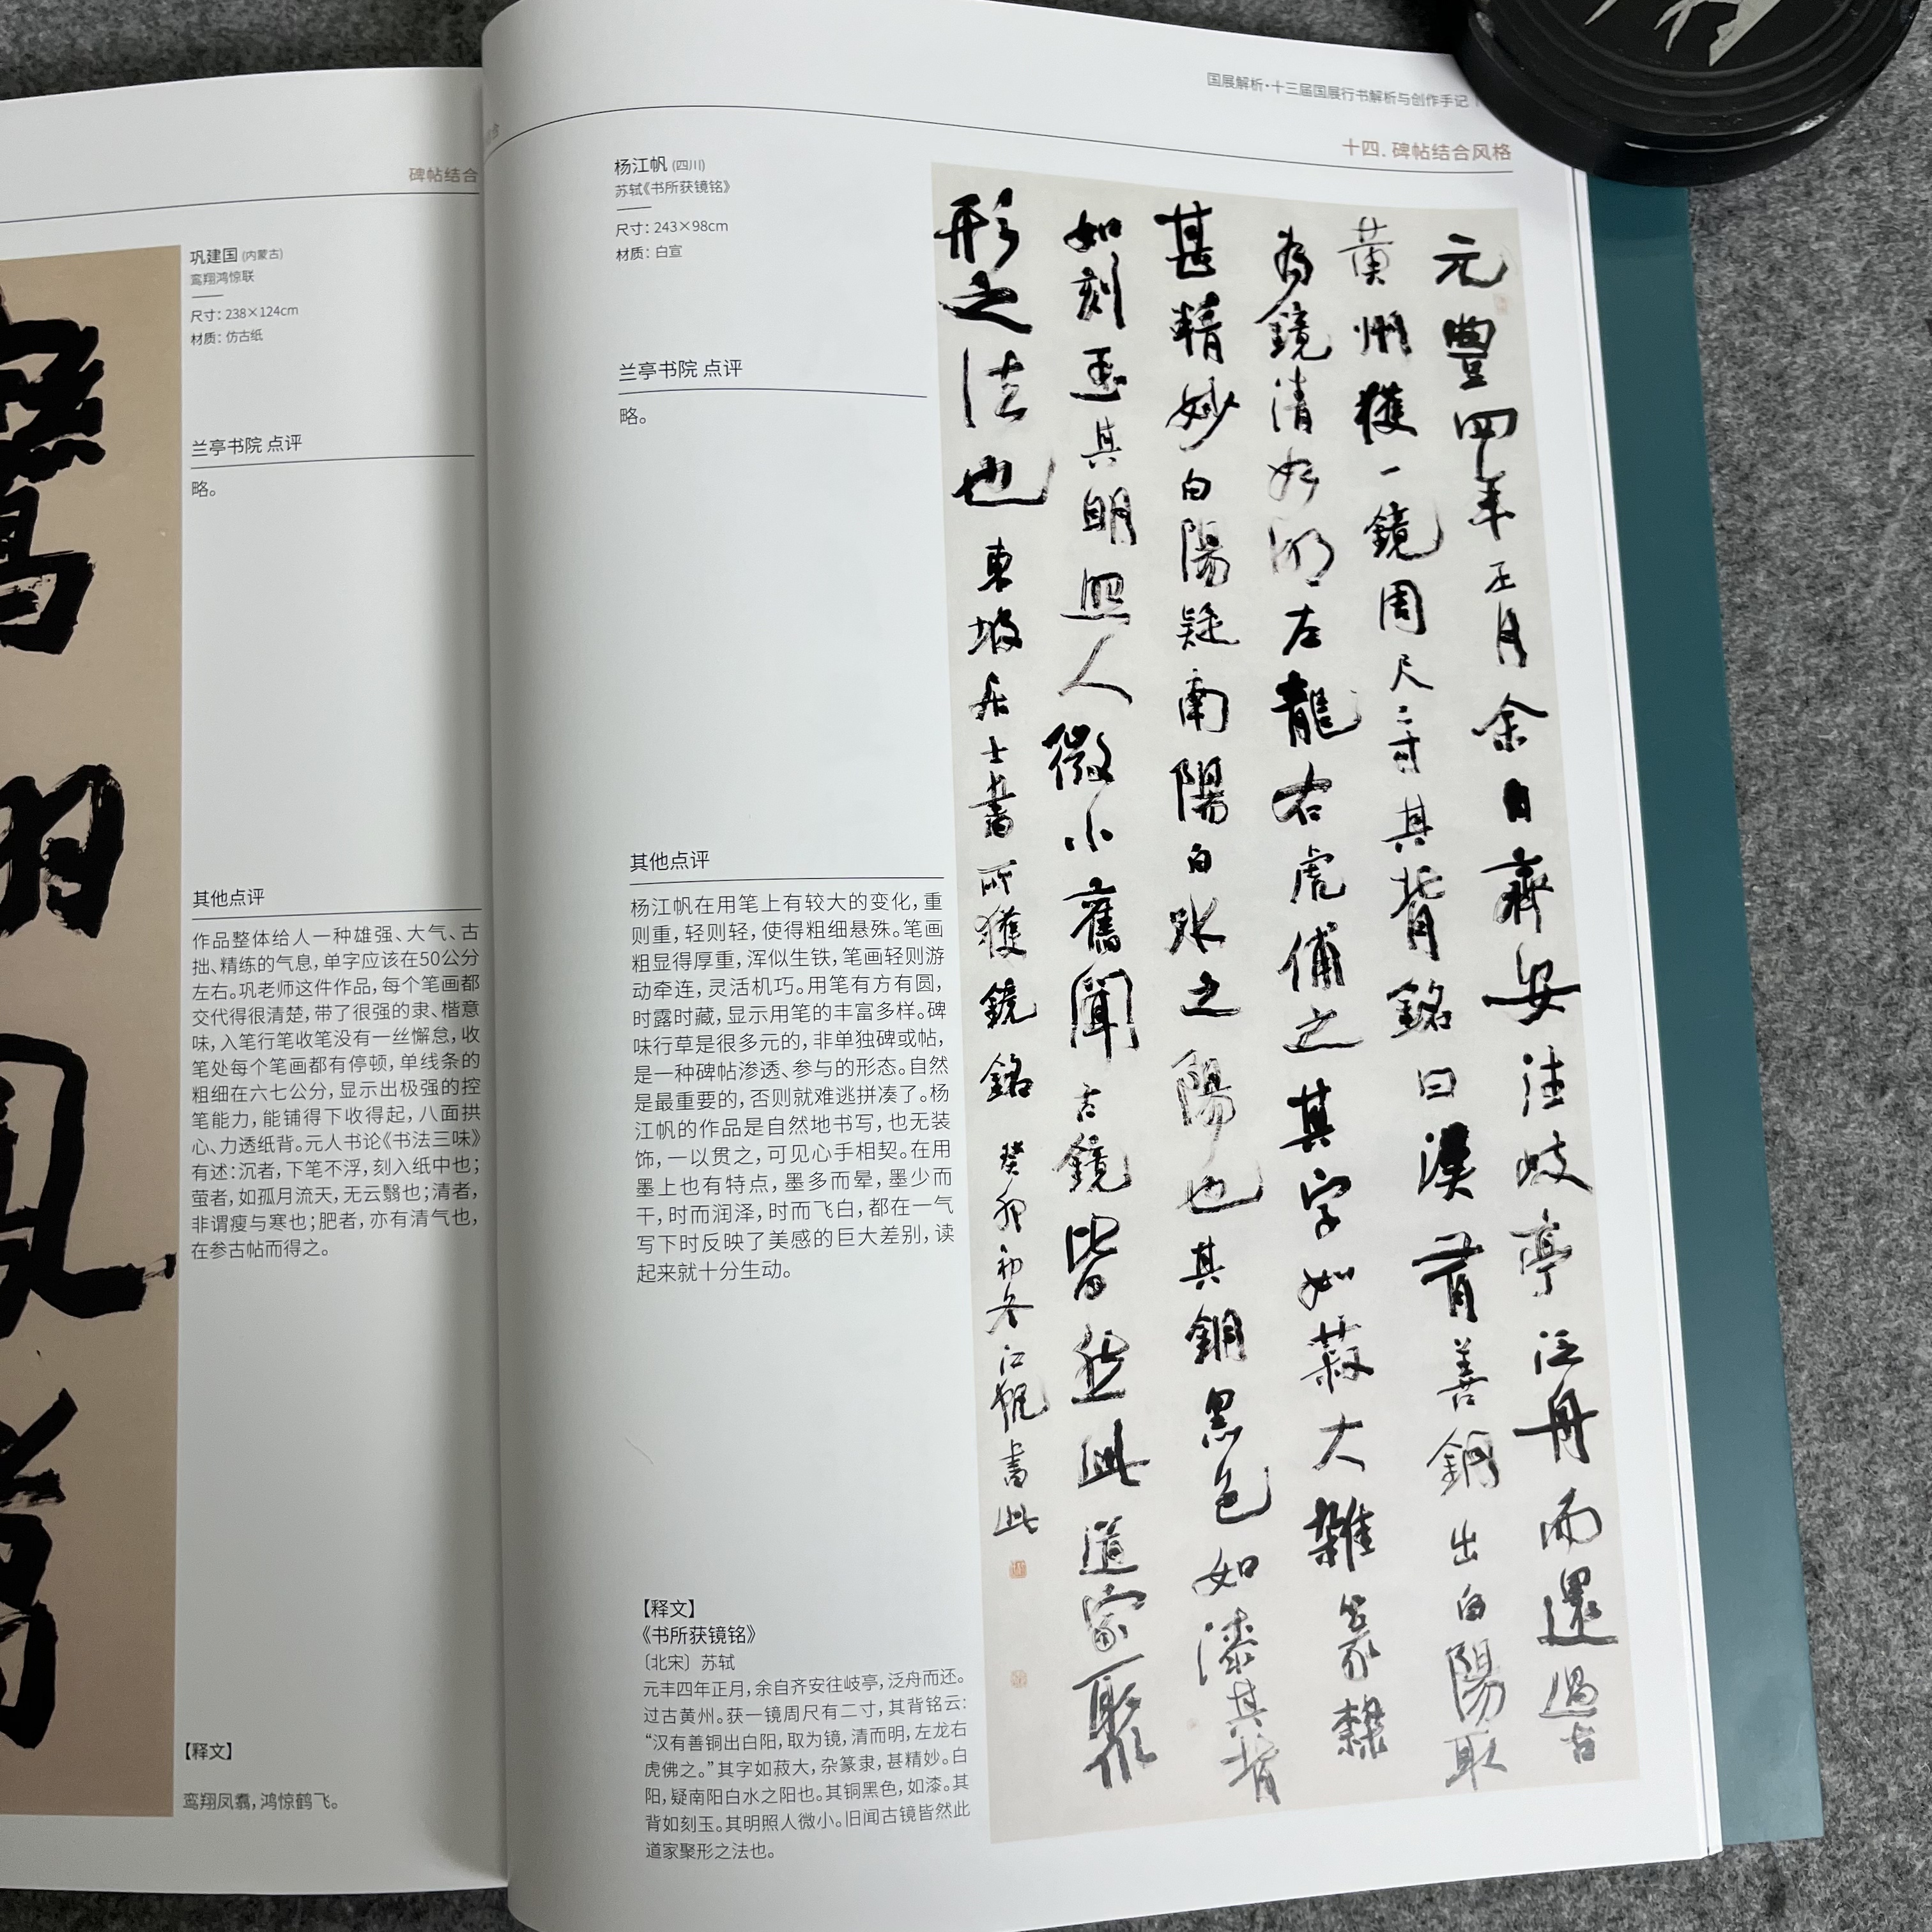 碑帖结合
巩建国 (内蒙古)
鸾翔鸿惊联
尺寸：238×124cm
材质：仿古纸
兰亭书院 点评
略。
其他点评
作品整体给人一种雄强、大气、古
拙、精练的气息，单字应该在50公分
左右。巩老师这件作品，每个笔画都
交代得很清楚，带了很强的隶、楷意
味，入笔行笔收笔没有一丝懈怠，收
笔处每个笔画都有停顿，单线条的
粗细在六七公分，显示出极强的控
笔能力，能铺得下收得起，八面拱
心、力透纸背。元人书论《书法三味》
有述：沉者，下笔不浮，刻入纸中也；
萤者，如孤月流天，无云翳也；清者，
非谓瘦与寒也；肥者，亦有清气也，
在参古帖而得之。
【释文】
鸾翔凤翥，鸿惊鹤飞。
国展解析·十三届国展行书解析与创作手记
十四. 碑帖结合风格
杨江帆 (四川)
苏轼《书所获镜铭》
尺寸：243×98cm
材质：白宣
兰亭书院 点评
略。
其他点评
杨江帆在用笔上有较大的变化，重
则重，轻则轻，使得粗细悬殊。笔画
粗显得厚重，浑似生铁，笔画轻则游
动牵连，灵活机巧。用笔有方有圆，
时露时藏，显示用笔的丰富多样。碑
味行草是很多元的，非单独碑或帖，
是一种碑帖渗透、参与的形态。自然
是最重要的，否则就难逃拼凑了。杨
江帆的作品是自然地书写，也无装
饰，一以贯之，可见心手相契。在用
墨上也有特点，墨多而晕，墨少而
干，时而润泽，时而飞白，都在一气
写下时反映了美感的巨大差别，读
起来就十分生动。
【释文】
《书所获镜铭》
〔北宋〕苏轼
元丰四年正月，余自齐安往岐亭，泛舟而还。
过古黄州。获一镜周尺有二寸，其背铭云：
“汉有善铜出白阳，取为镜，清而明，左龙右
虎佛之。”其字如菽大，杂篆隶，甚精妙。白
阳，疑南阳白水之阳也。其铜黑色，如漆。其
背如刻玉。其明照人微小。旧闻古镜皆然此
道家聚形之法也。
元豐四年正月余自齊安往岐亭泛舟而還過古
黄州獲一鏡周尺二寸其背銘曰漢有善銅出白陽取
為鏡清如明左龍右虎俌之其字如菽大雜篆隸
甚精妙白陽疑南陽白水之陽也其銅黑色如漆其背
如刻玉其明照人微小舊聞古鏡皆然此道家聚
形之法也東坡居士書所獲鏡銘癸卯初冬江帆書此